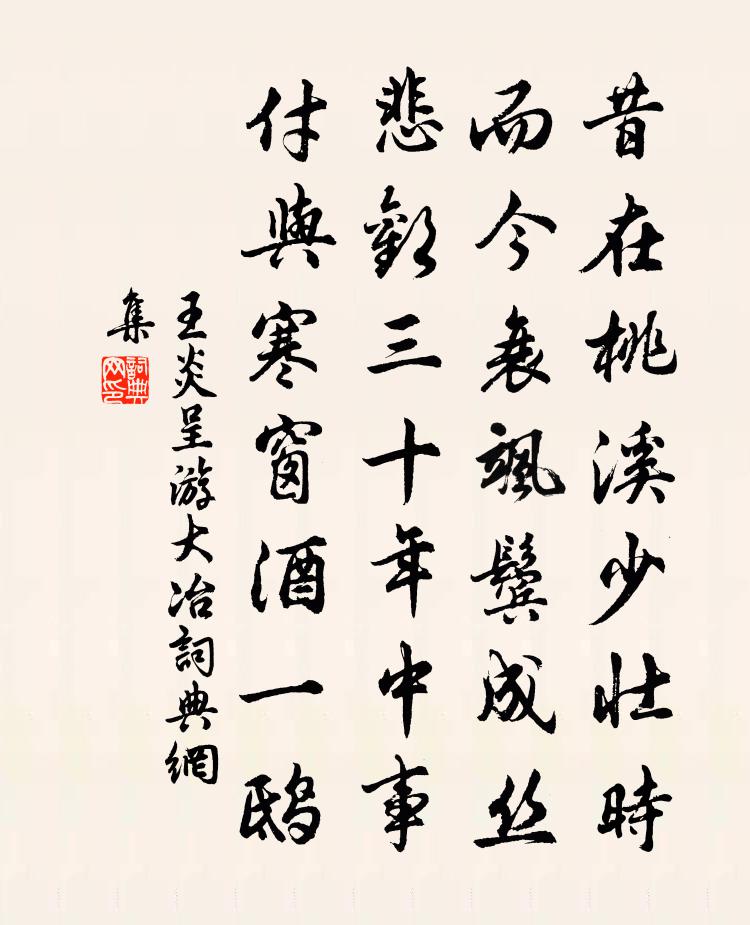 昔在桃溪少壯時
而今衰颯鬢成丝
悲歡三十年中事
付與寒窗酒一鴟
王炎呈游大冶詞典網
集
詞典
网印